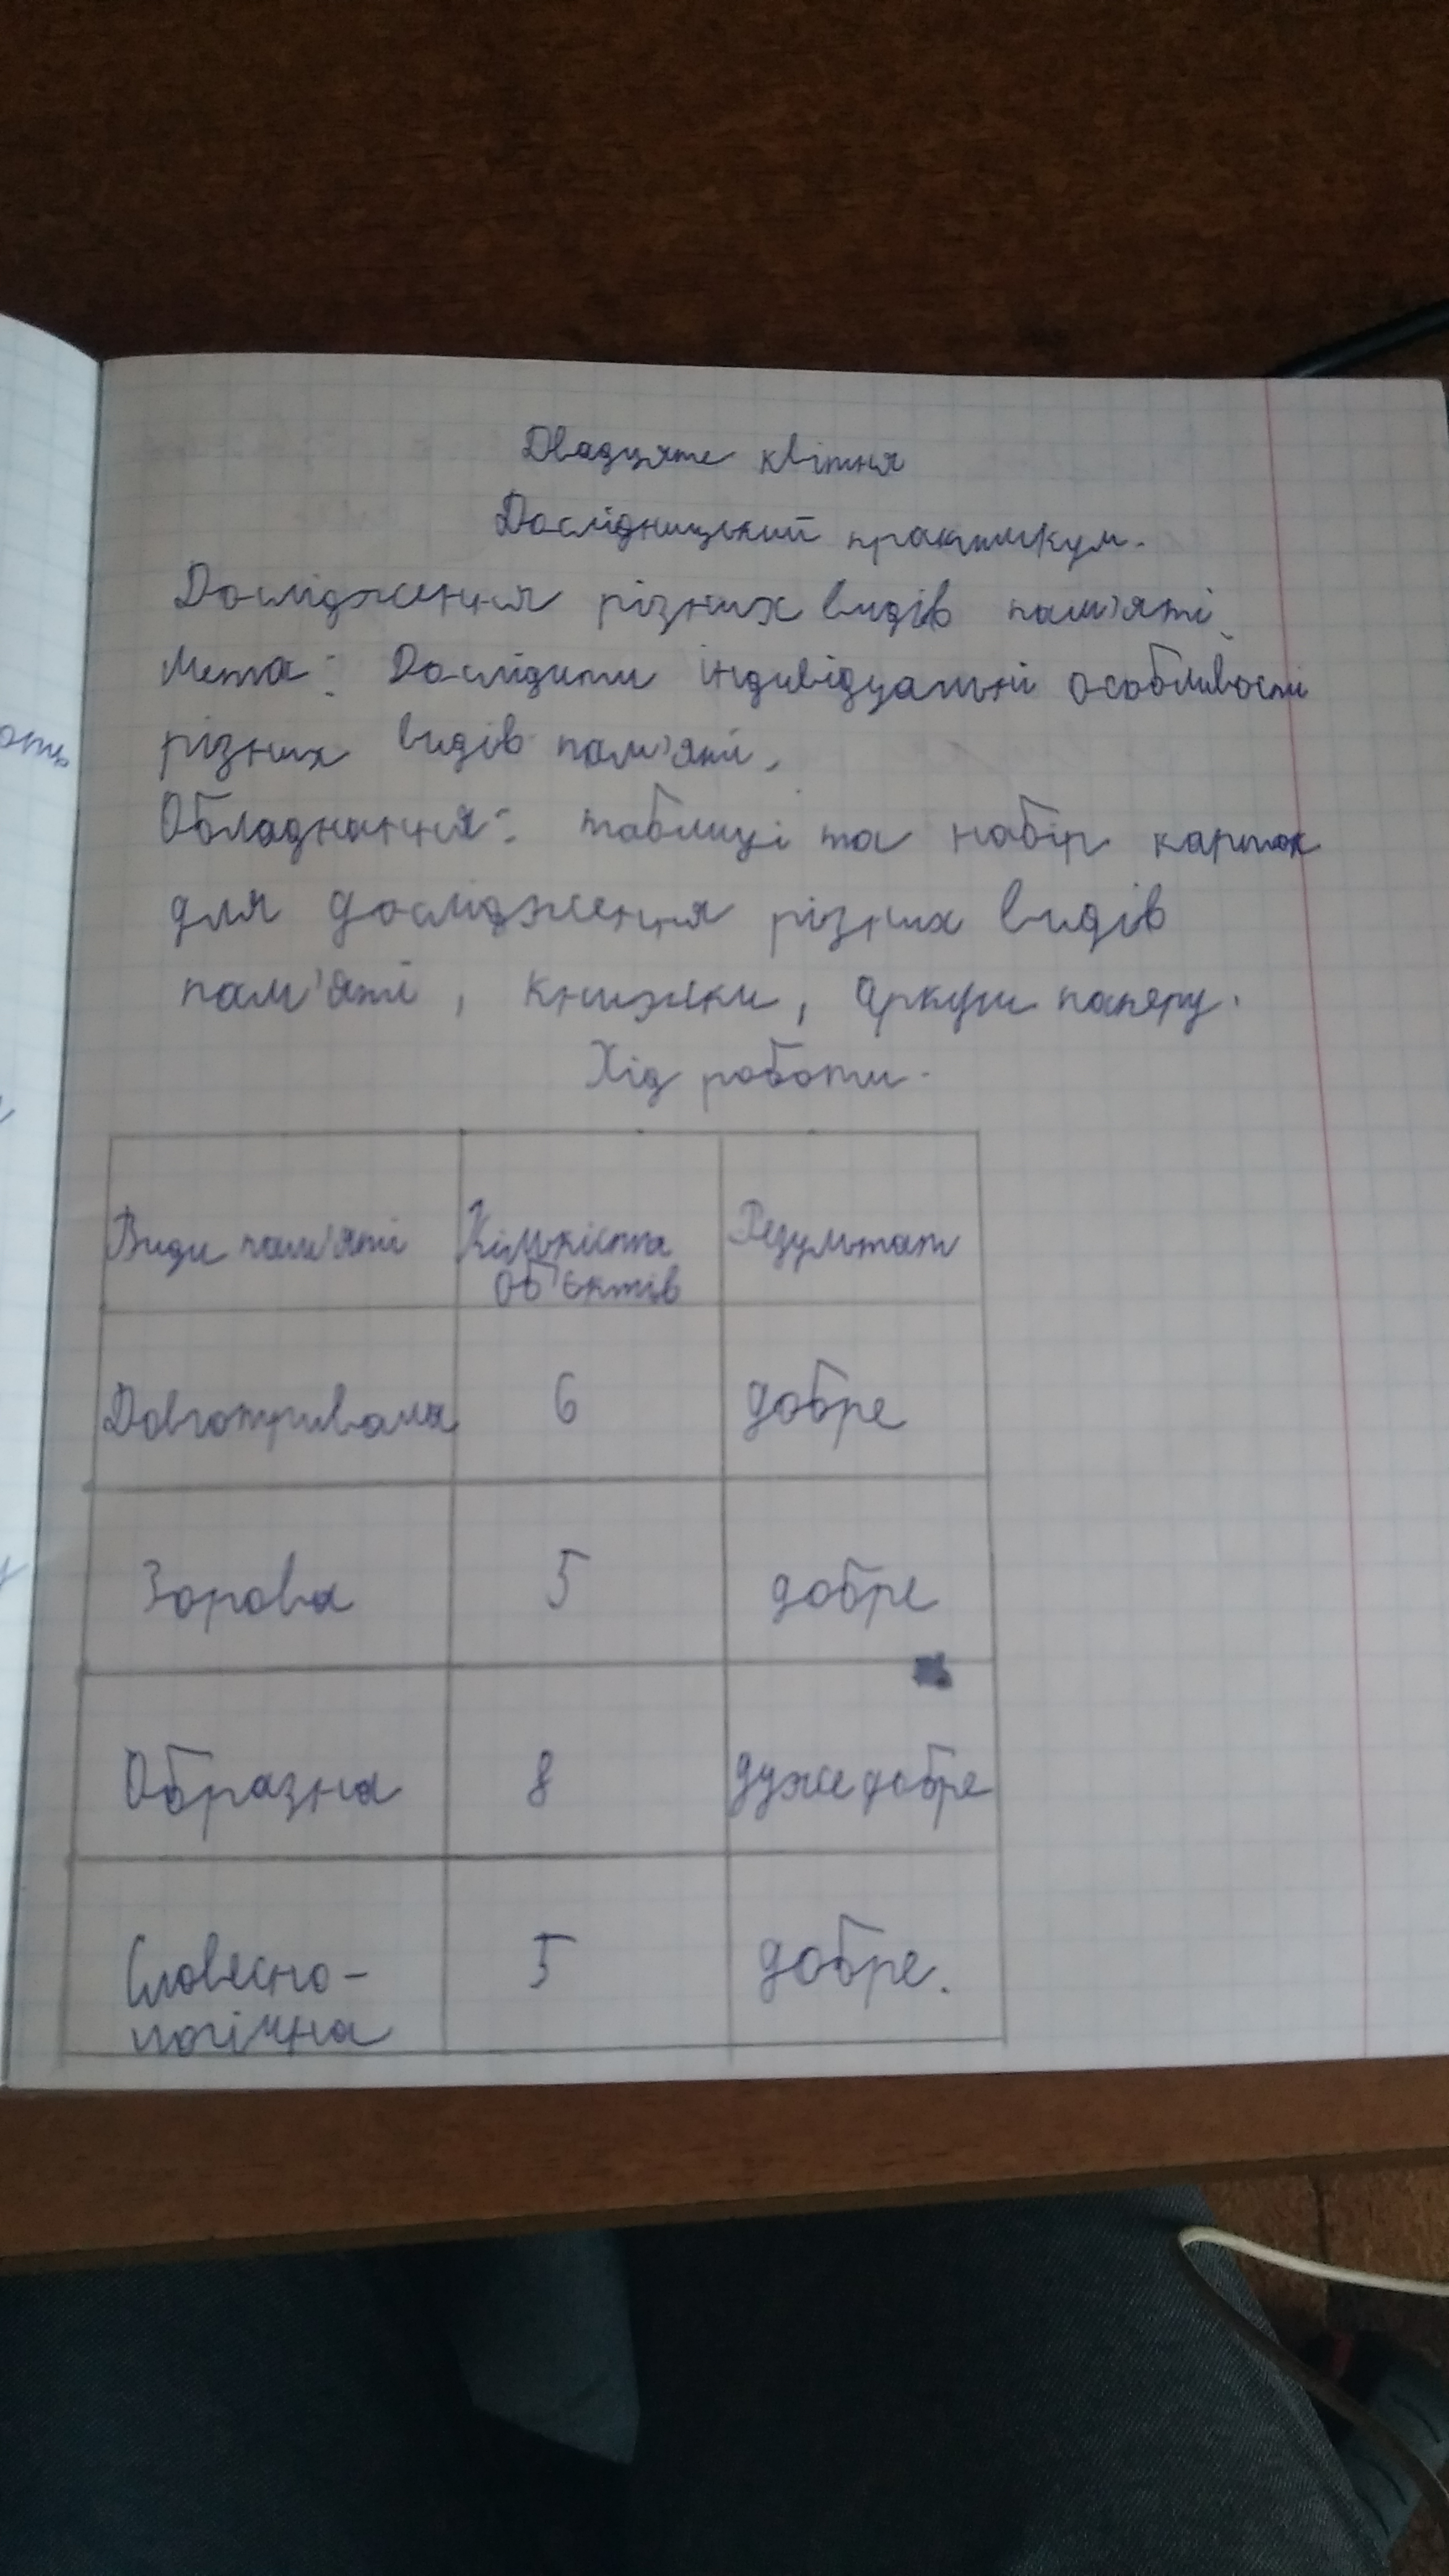 Двадцяте квітня
Дослідницький практикум.
Дослідження різних видів пам'яті.
Мета: Дослідити індивідуальні особливості
різних видів пам'яті.
Обладнання: таблиці та набір карток
для дослідження різних видів
пам'яті, книжки, аркуш паперу.
Хід роботи.
Види пам'яті Кількість Результат
об'єктів
Довготривала 6 добре
Зорова 5 добре
Образна 8 дуже добре
Словесно- 5 добре.
логічна